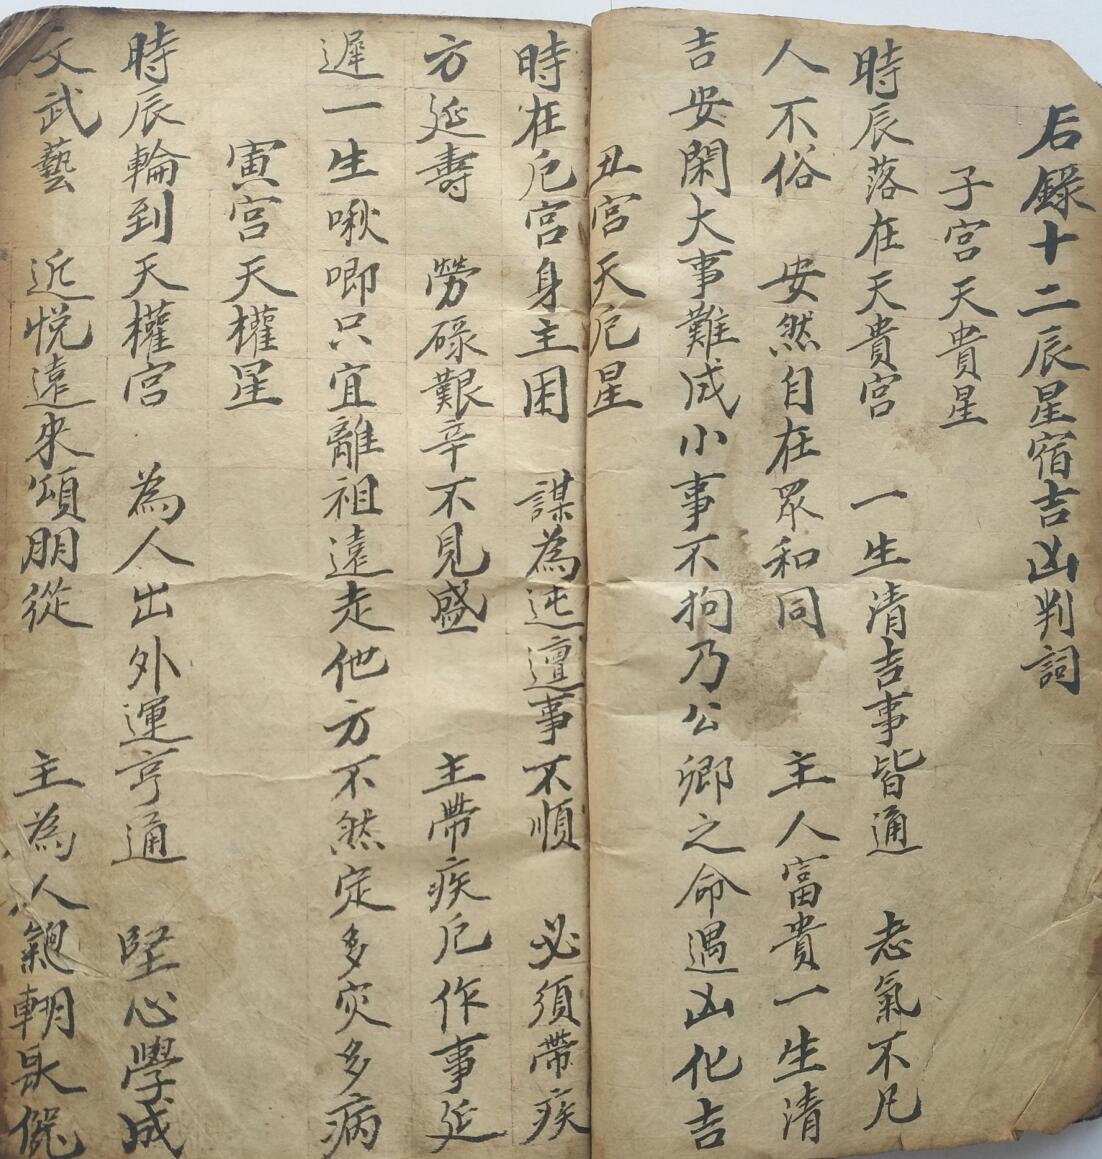 后錄十二辰星宿吉凶判詞
子宮天貴星
時辰落在天貴宮 一生清吉事皆通 志氣不凡
人不俗 安然自在眾和同 主人富貴一生清
吉安閑大事難成小事不拘乃公卿之命遇凶化吉
丑宮天厄星
時在厄宮身主困 謀為迍邅事不順 必須帶疾
方延壽 勞碌艱辛不見盛 主帶疾厄作事延
遲一生啾唧只宜離祖遠走他方不然定多災多病
寅宮天權星
時辰輪到天權宮 為人出外運亨通 堅心學成
文武藝 近悅遠來頌朋從 主為人